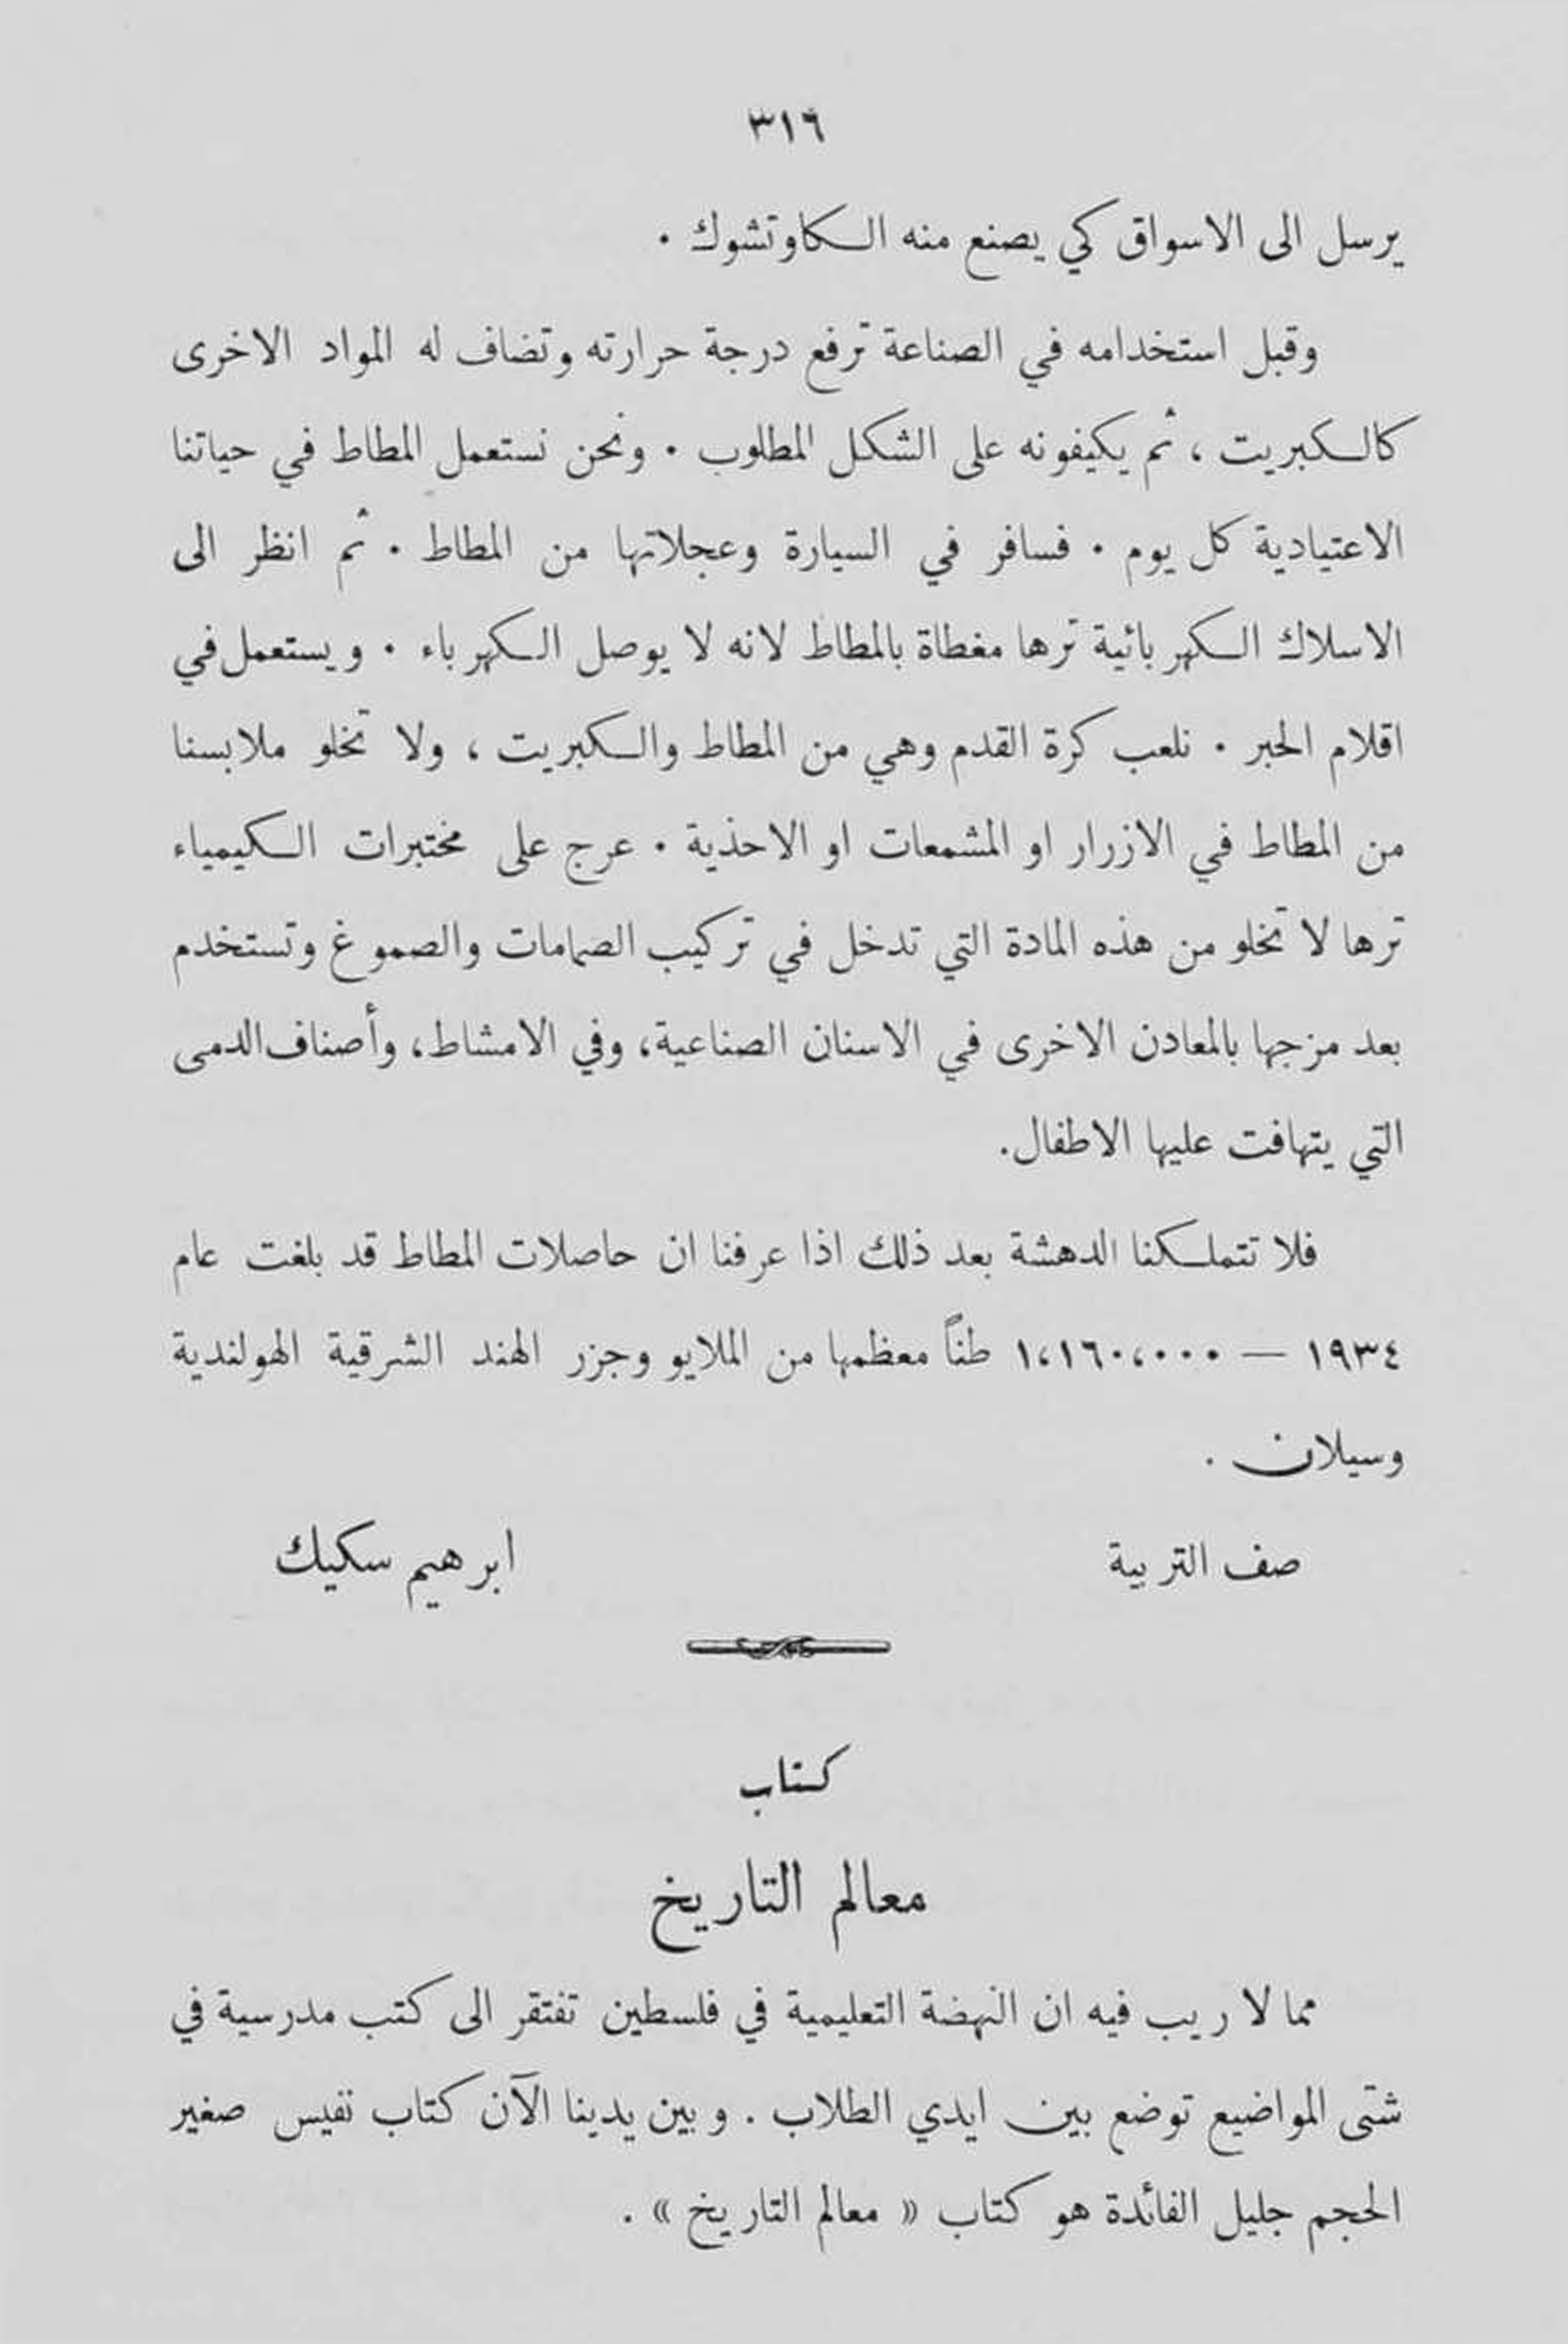 ٣١٦
يرسل الى الاسواق كي يصنع منه الكاوتشوك .
وقبل استخدامه في الصناعة ترفع درجة حرارته وتضاف له المواد الاخرى
كالكبريت ، ثم يكيفونه على الشكل المطلوب . ونحن نستعمل المطاط في حياتنا
الاعتيادية كل يوم . فسافر في السيارة وعجلاتها من المطاط . ثم انظر الى
الاسلاك الكهربائية ترها مغطاة بالمطاط لانه لا يوصل الكهرباء . ويستعمل في
اقلام الحبر . نلعب كرة القدم وهي من المطاط والكبريت ، ولا تخلو ملابسنا
من المطاط في الازرار او المشمعات او الاحذية . عرج على مختبرات الكيمياء
ترها لا تخلو من هذه المادة التي تدخل في تركيب الصمامات والصموغ وتستخدم
بعد مزجها بالمعادن الاخرى في الاسنان الصناعية، وفي الامشاط، وأصناف الدمى
التي يتهافت عليها الاطفال.
فلا تتملكنا الدهشة بعد ذلك اذا عرفنا ان حاصلات المطاط قد بلغت عام
١٩٣٤ — ١،١٦٠،٠٠٠ طناً معظمها من الملايو وجزر الهند الشرقية الهولندية
وسيلان .
صف التربية ابرهيم سكيك
كتاب
معالم التاريخ
مما لا ريب فيه ان النهضة التعليمية في فلسطين تفتقر الى كتب مدرسية في
شتى المواضيع توضع بين ايدي الطلاب . وبين يدينا الآن كتاب نفيس صغير
الحجم جليل الفائدة هو كتاب « معالم التاريخ » .